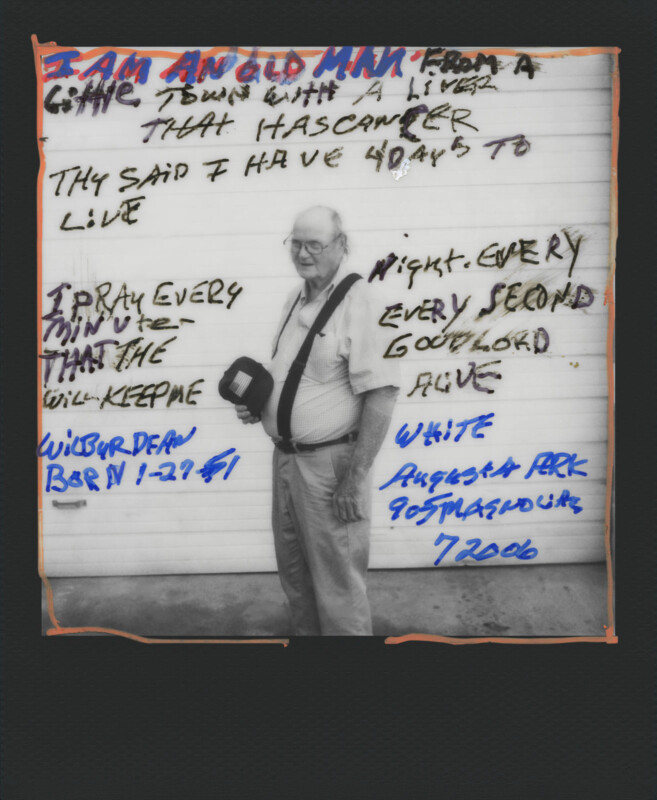 I AM AN OLD MAN FROM A
Little TOWN WITH A LIVER
THAT HAS CANCER
THY SAID I HAVE 4 DAYS TO
LIVE
I PRAY EVERY Night. EVERY
MINUte EVERY SECOND
THAT THE GOOD LORD
WILL KEEP ME ALIVE
WILBUR DEAN WHITE
BORN 1-27-51 AUGUSTA ARK
905 MAGNOLIAS
72006